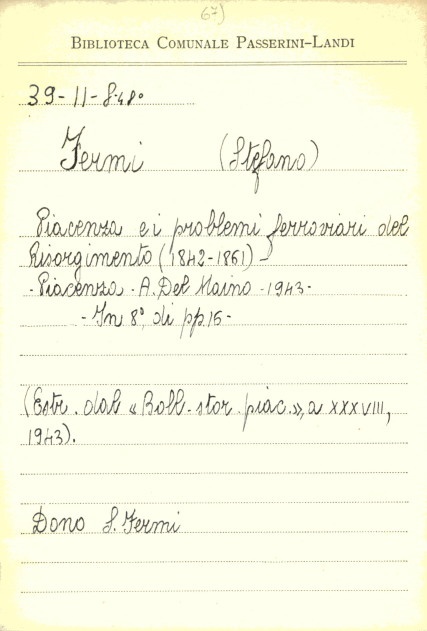 67)
BIBLIOTECA COMUNALE PASSERINI-LANDI
39-11-8.48°
Fermi (Stefano)
Piacenza e i problemi ferroviari del
Risorgimento (1842-1861) -
- Piacenza - A. Del Maino - 1943 -
- In 8°, di pp. 16 -
(Estr. dal «Boll. stor. piac.», a XXXVIII,
1943).
Dono S. Fermi